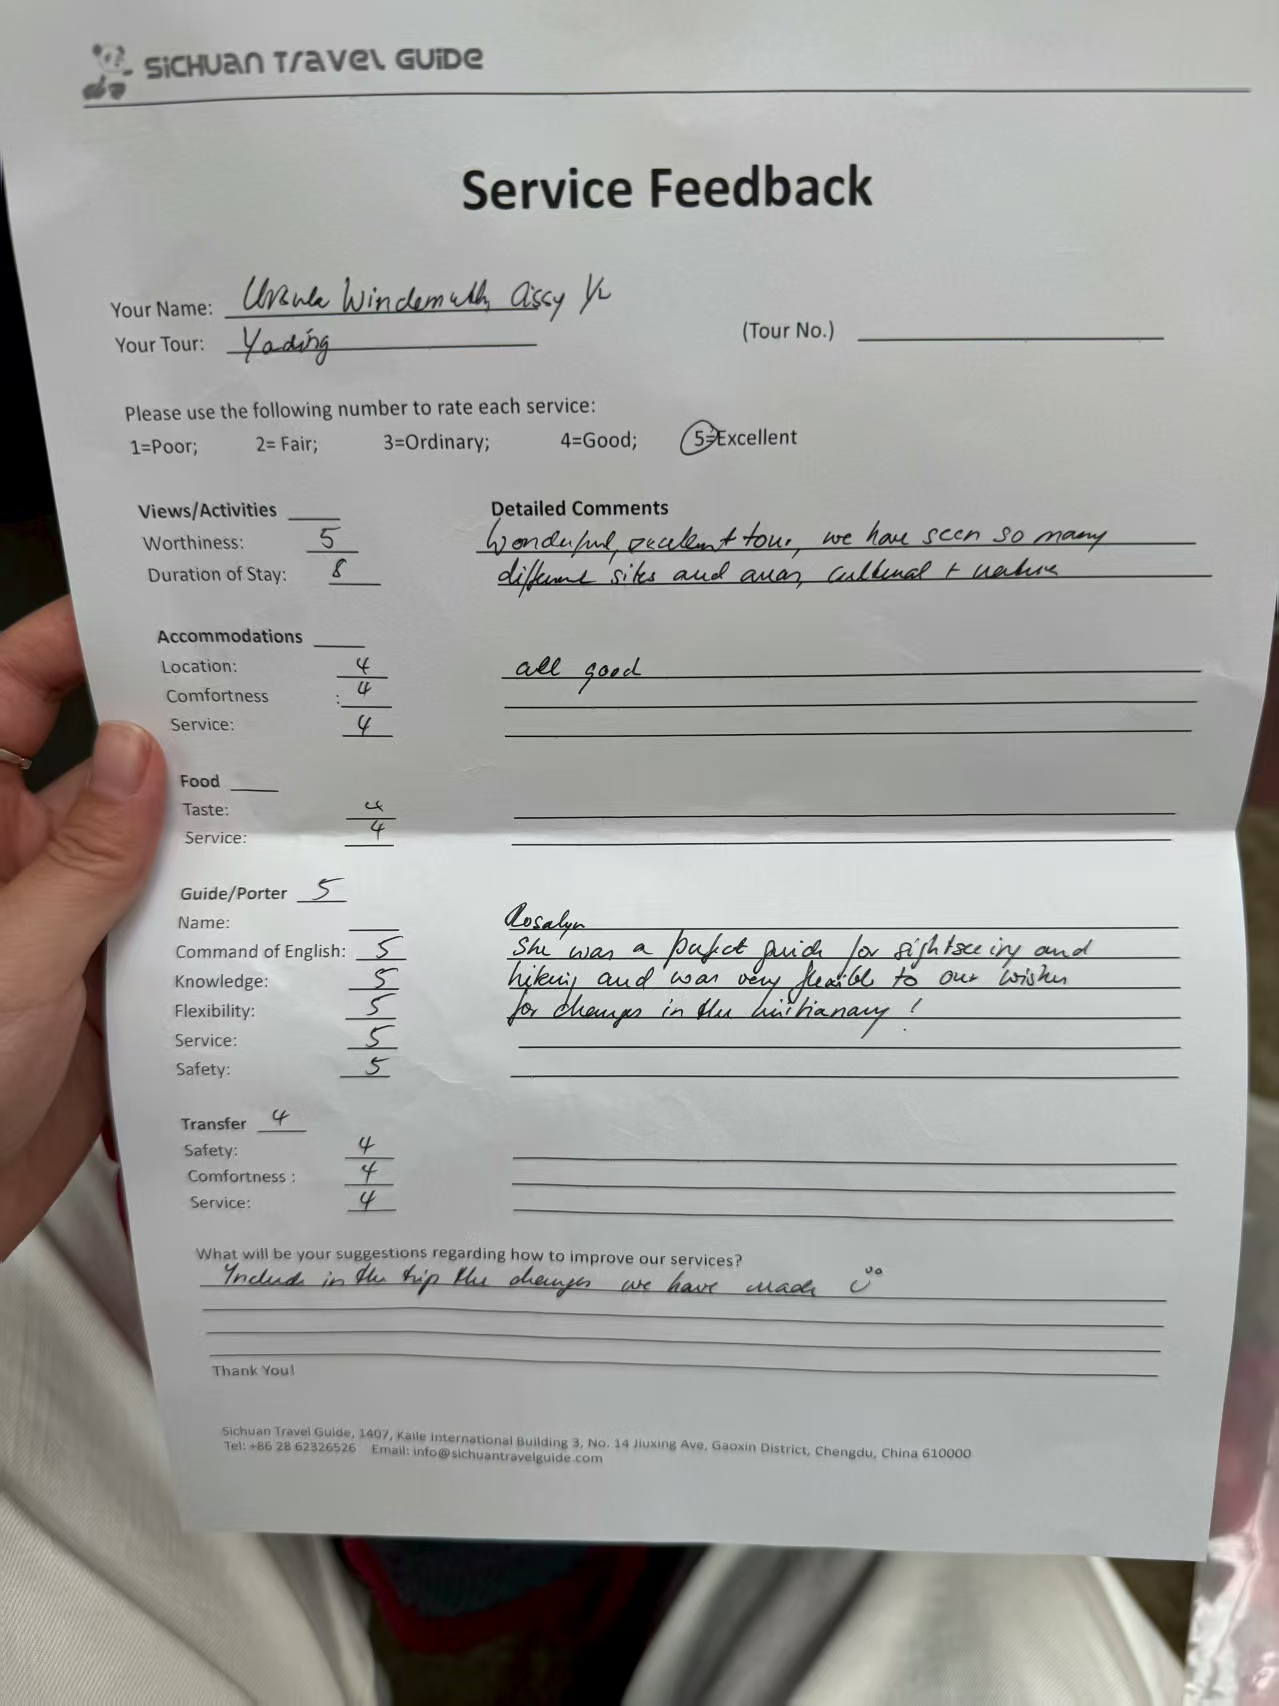 SICHUAN TRAVEL GUIDE
Service Feedback
Your Name: Ursula Windemuth, Assy
Your Tour: Yading (Tour No.)
Please use the following number to rate each service:
1=Poor; 2= Fair; 3=Ordinary; 4=Good; 5=Excellent
Views/Activities Detailed Comments
Worthiness: 5 Wonderful, excelent tour, we have seen so many
Duration of Stay: 8 different sites and areas, cultural + nature
Accommodations
Location: 4 all good
Comfortness : 4
Service: 4
Food
Taste: 4
Service: 4
Guide/Porter 5
Name: Rosalyn
Command of English: 5 She was a perfect guide for sightseeing and
Knowledge: 5 hiking and was very flexible to our wishes
Flexibility: 5 for changes in the !
Service: 5
Safety: 5
Transfer 4
Safety: 4
Comfortness : 4
Service: 4
What will be your suggestions regarding how to improve our services?
Include in the trip the changes we have made
Thank You!
Sichuan Travel Guide, 1407, Kaile International Building 3, No. 14 Jiuxing Ave, Gaoxin District, Chengdu, China 610000
Tel: +86 28 62326526 Email: info@sichuantravelguide.com